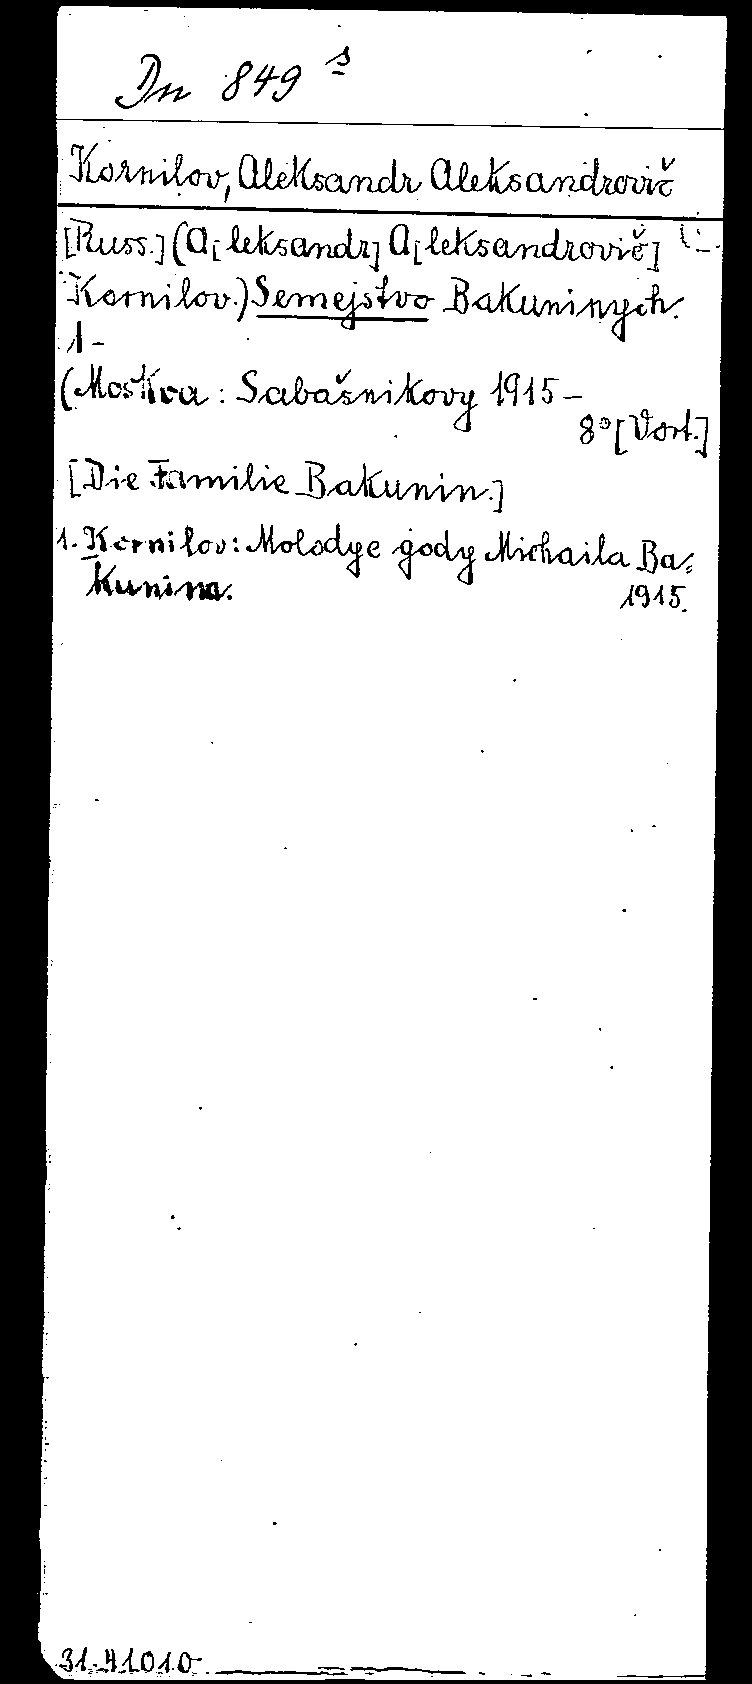 Dn 849 s
Kornilov, Aleksandr Aleksandrovič
[Russ.] (A[leksandr] A[leksandrovič]
Kornilov.) Semejstvo Bakuninych.
1-
(Moskva: Sabašnikovy 1915-
8° [Vort.]
[Die Familie Bakunin.]
1. Kornilov: Molodye gody Michaila Ba=
kunina. 1915.
31.41010